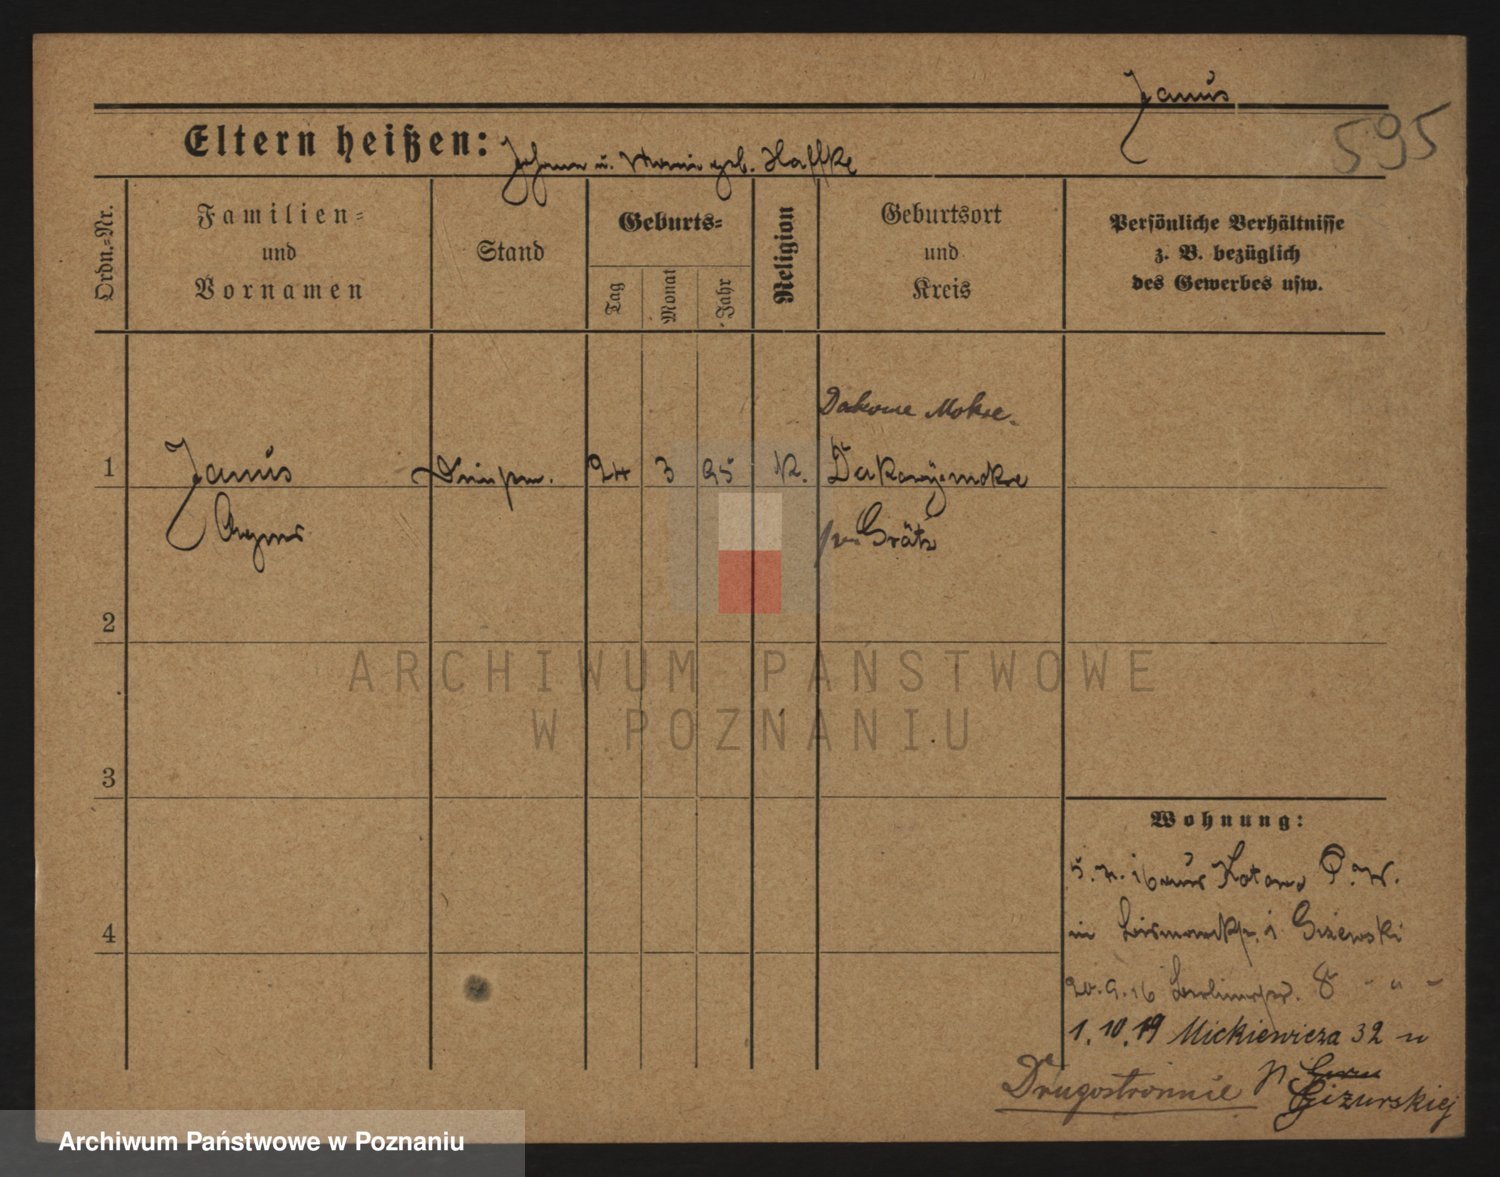 Janus
595
Eltern heißen: Johann u. Maria geb. Haffke
Ordn.-Nr.
Familien-
und
Vornamen
Stand
Geburts-
Tag
Monat
Jahr
Religion
Geburtsort
und
Kreis
Persönliche Verhältnisse
z. B. bezüglich
des Gewerbes usw.
Dakowe Mokre.
1
Janus
24
3
95
K.
Dakowy-mokre
Agnes
Grätz
2
ARCHIWUM PAŃSTWOWE
W POZNANIU
3
Wohnung:
16 aus P. W.
4
in Bismarckstr. 1 Giżewski
20.9.16 Berlinerstr. 8 - " -
1.10.19 Mickiewicza 32 u
Drugostronnie p.
Gizurskiej
Archiwum Państwowe w Poznaniu